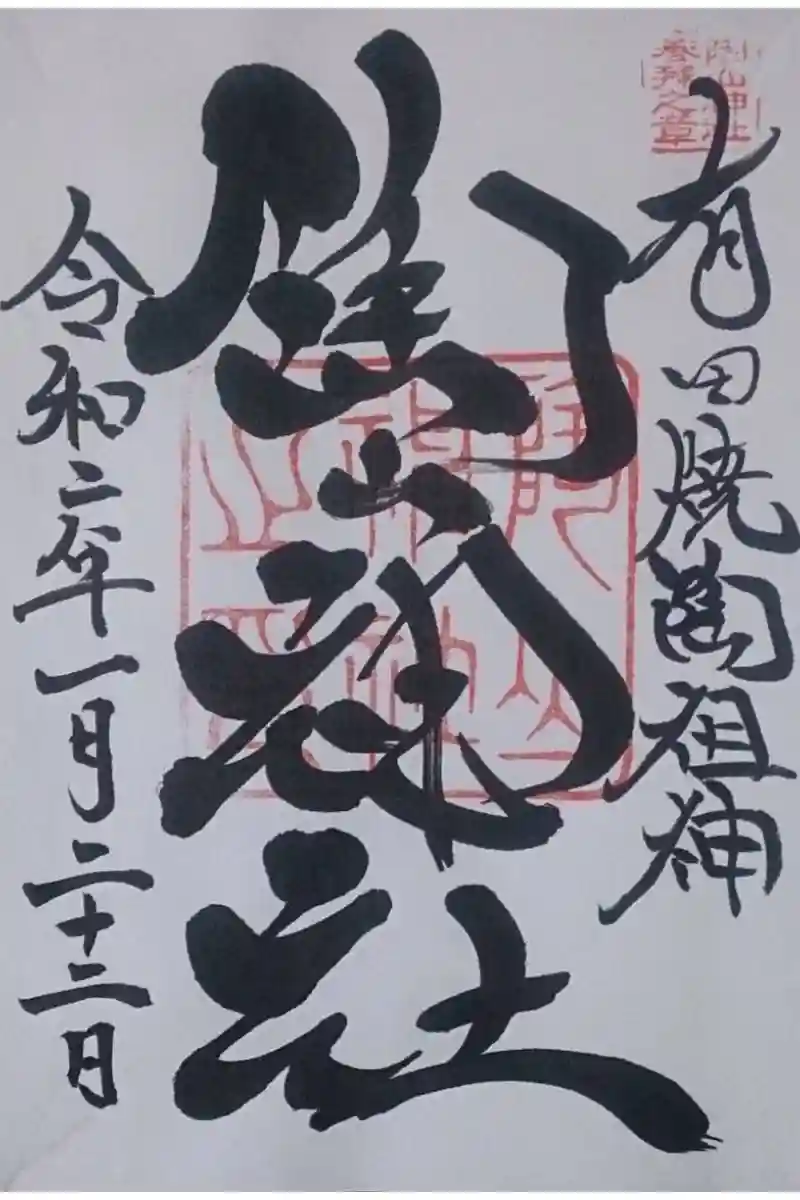 陶山神社
参拝之章
有田焼陶祖神
陶山神社
陶山神社之印
令和二年一月二十三日